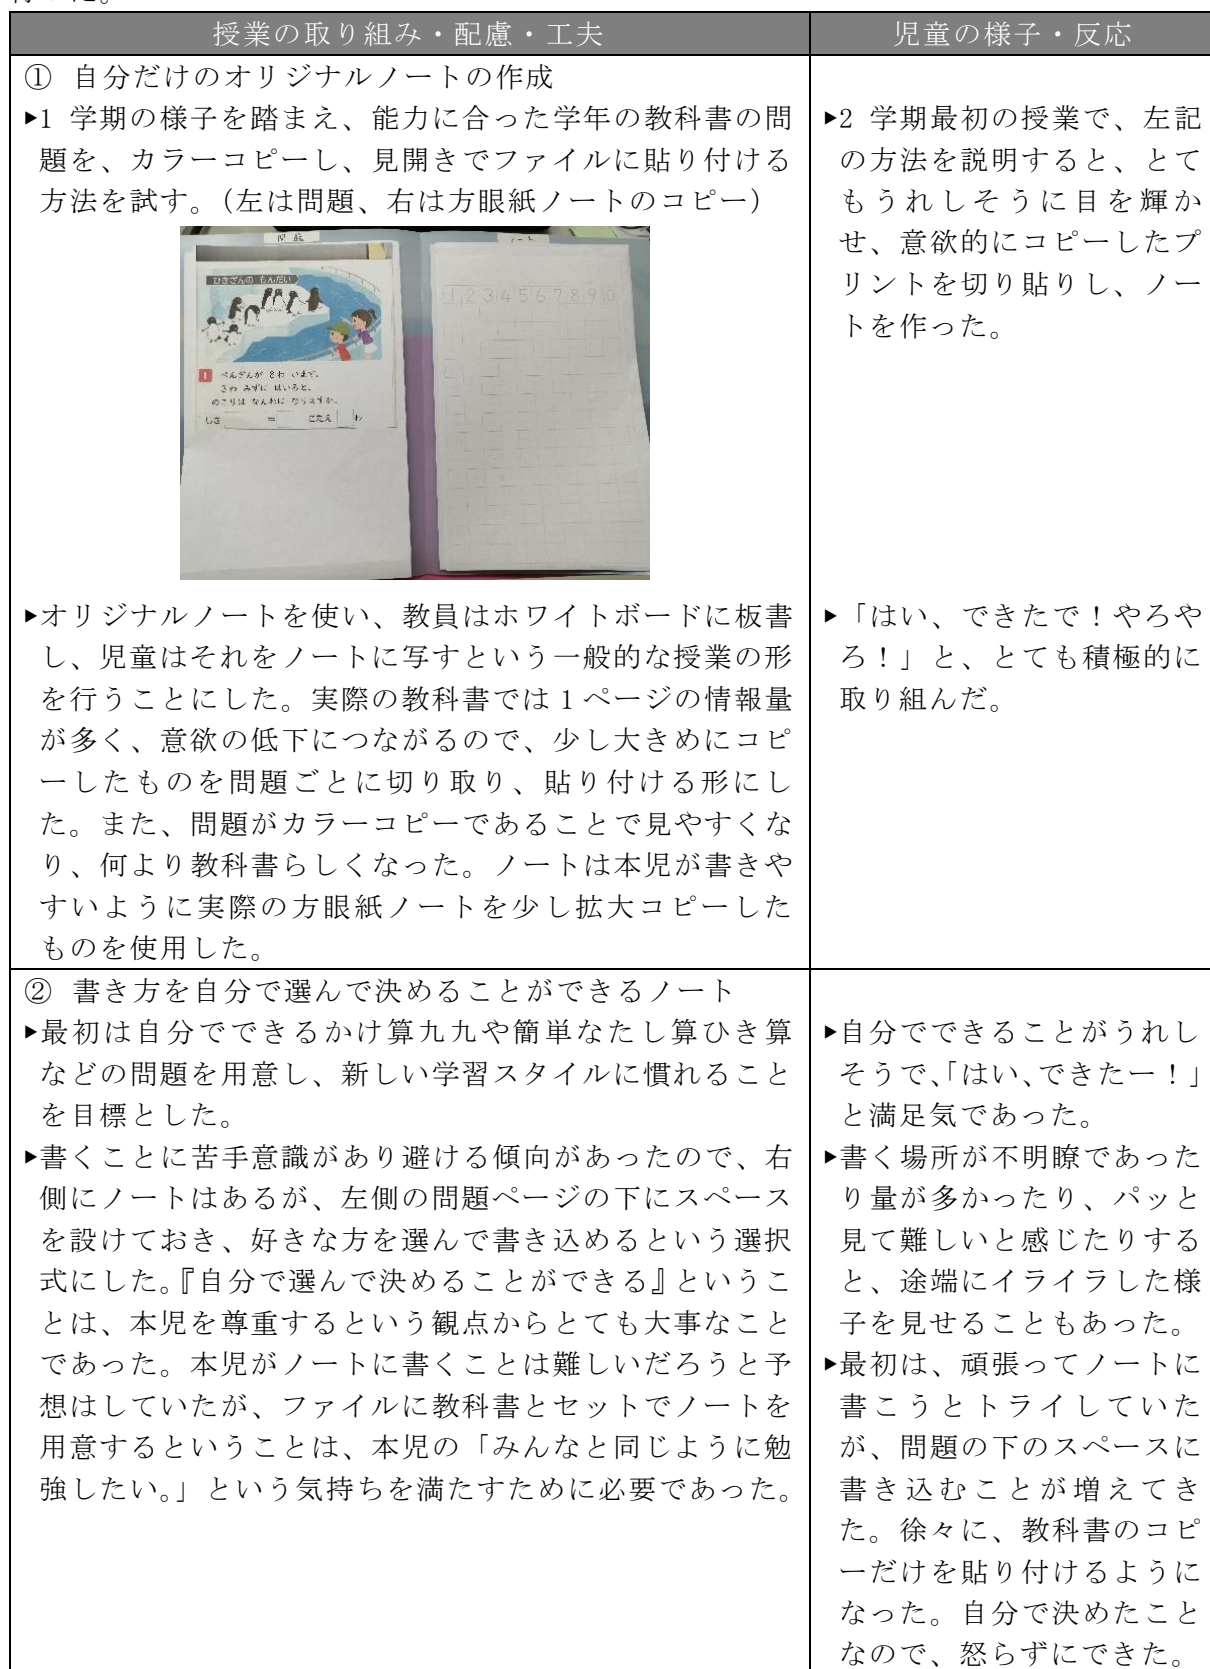 授業の取り組み・配慮・工夫
児童の様子・反応
① 自分だけのオリジナルノートの作成
▶1 学期の様子を踏まえ、能力に合った学年の教科書の問
題を、カラーコピーし、見開きでファイルに貼り付ける
方法を試す。（左は問題、右は方眼紙ノートのコピー）
問題
ひきざんの もんだい
1 2 3 4 5 6 7 8 9 10
1 ぺんぎんが 8わ います。
3わ みずに はいると、
のこりは なんわに なりますか。
しき = こたえ わ
▶2 学期最初の授業で、左記
の方法を説明すると、とて
もうれしそうに目を輝か
せ、意欲的にコピーしたプ
リントを切り貼りし、ノー
トを作った。
▶オリジナルノートを使い、教員はホワイトボードに板書
し、児童はそれをノートに写すという一般的な授業の形
を行うことにした。実際の教科書では 1 ページの情報量
が多く、意欲の低下につながるので、少し大きめにコピ
ーしたものを問題ごとに切り取り、貼り付ける形にし
た。また、問題がカラーコピーであることで見やすくな
り、何より教科書らしくなった。ノートは本児が書きや
すいように実際の方眼紙ノートを少し拡大コピーした
ものを使用した。
▶「はい、できたで！やろや
ろ！」と、とても積極的に
取り組んだ。
② 書き方を自分で選んで決めることができるノート
▶最初は自分でできるかけ算九九や簡単なたし算ひき算
などの問題を用意し、新しい学習スタイルに慣れること
を目標とした。
▶書くことに苦手意識があり避ける傾向があったので、右
側にノートはあるが、左側の問題ページの下にスペース
を設けておき、好きな方を選んで書き込めるという選択
式にした。『自分で選んで決めることができる』というこ
とは、本児を尊重するという観点からとても大事なこと
であった。本児がノートに書くことは難しいだろうと予
想はしていたが、ファイルに教科書とセットでノートを
用意するということは、本児の「みんなと同じように勉
強したい。」という気持ちを満たすために必要であった。
▶自分でできることがうれし
そうで、「はい、できたー！」
と満足気であった。
▶書く場所が不明瞭であった
り量が多かったり、パッと
見て難しいと感じたりする
と、途端にイライラした様
子を見せることもあった。
▶最初は、頑張ってノートに
書こうとトライしていた
が、問題の下のスペースに
書き込むことが増えてき
た。徐々に、教科書のコピ
ーだけを貼り付けるように
なった。自分で決めたこと
なので、怒らずにできた。